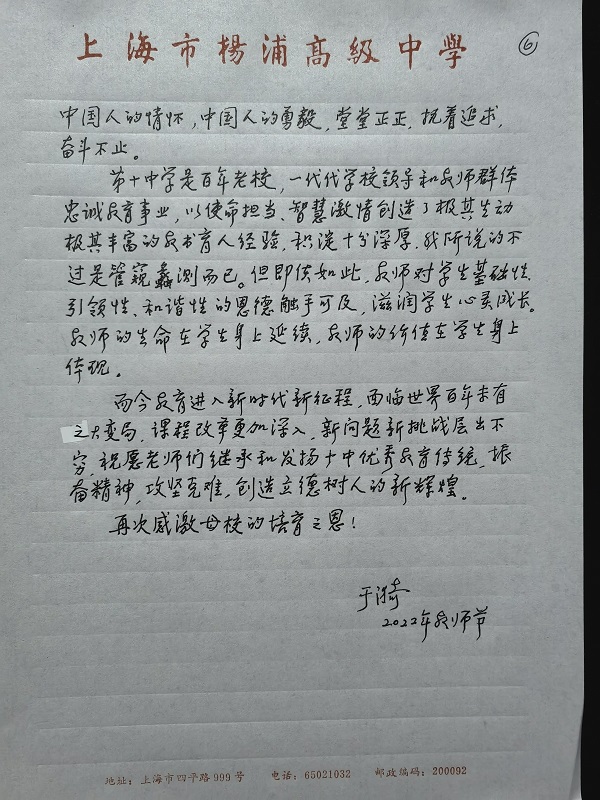 上海市楊浦高級中學
⑥
中国人的情怀，中国人的勇毅，堂堂正正，执着追求，
奋斗不止。
第十中学是百年老校，一代代学校领导和教师群体
忠诚教育事业，以使命担当、智慧激情创造了极其生动
极其丰富的教书育人经验，积淀十分深厚，我所说的不
过是管窥蠡测而已。但即使如此，教师对学生基础性、
引领性、和谐性的恩德触手可及，滋润学生心灵成长。
教师的生命在学生身上延续，教师的价值在学生身上
体现。
而今教育进入新时代新征程，面临世界百年未有
之大变局，课程改革更加深入，新问题新挑战层出不
穷，祝愿老师们继承和发扬十中优秀教育传统，振
奋精神，攻坚克难，创造立德树人的新辉煌。
再次感激母校的培育之恩！
于漪
2022年教师节
地址：上海市四平路999号 电话：65021032 邮政编码：200092